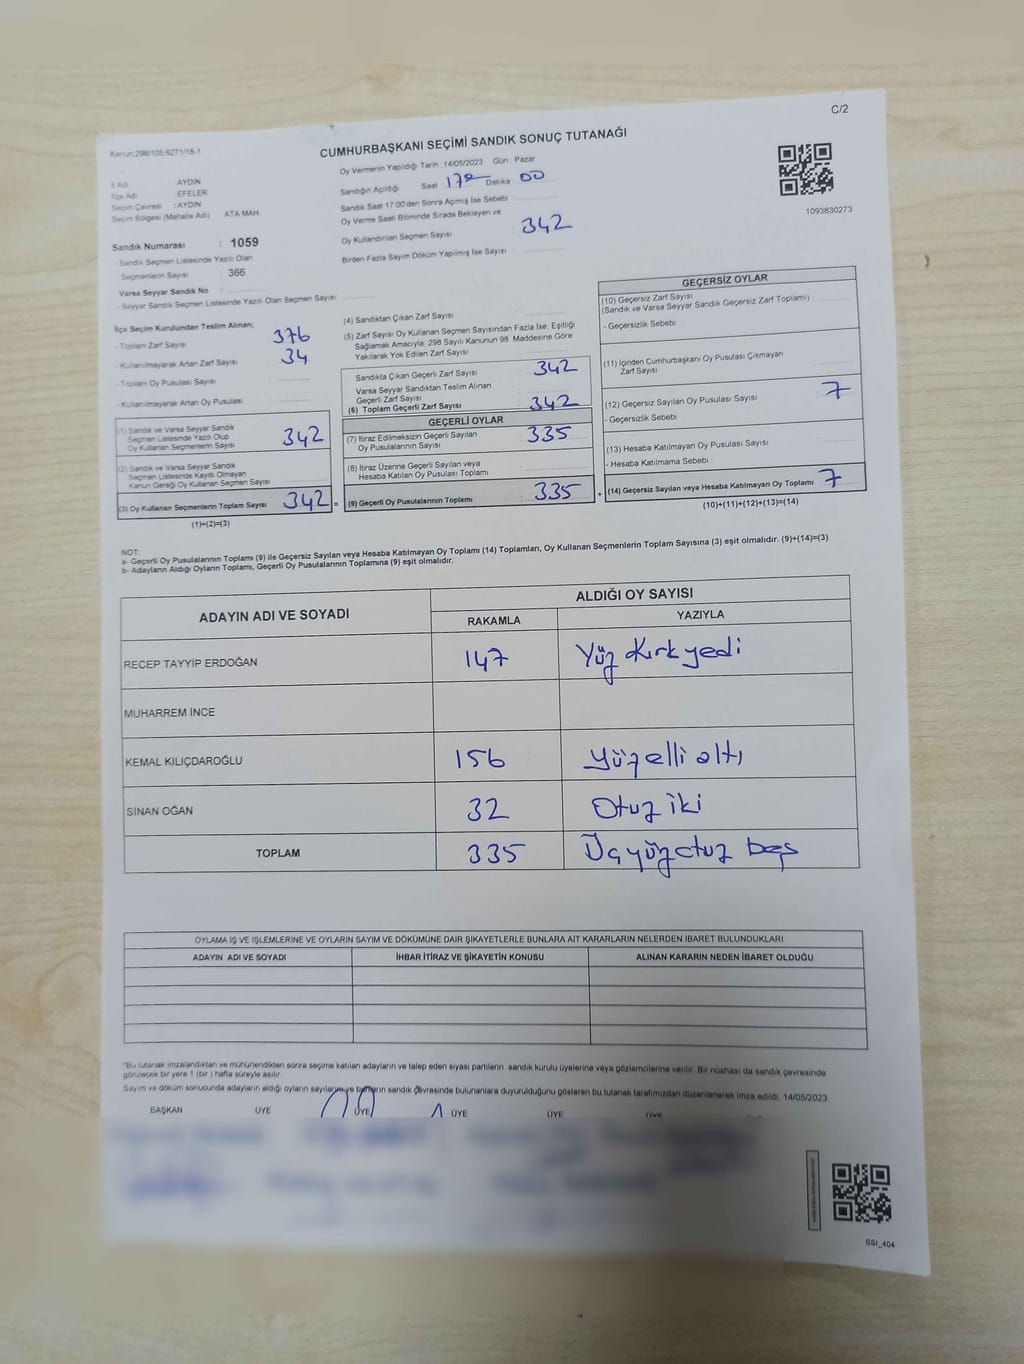 C/2
Kanun:298/105,6271/18-1
CUMHURBAŞKANI SEÇİMİ SANDIK SONUÇ TUTANAĞI
Oy Vermenin Yapıldığı Tarih :14/05/2023 Gün : Pazar
Sandığın Açıldığı Saat 17 Dakika 00
Sandık Saat 17:00'den Sonra Açımış İse Sebebi
Oy Verme Saati Bitiminde Sırada Bekleyen ve
Oy Kullandırılan Seçmen Sayısı 342
Birden Fazla Sayım Döküm Yapılmış İse Sayısı
1093830273
İl Adı : AYDIN
İlçe Adı : EFELER
Seçim Çevresi : AYDIN
Seçim Bölgesi (Mahalle Adı) ATA MAH.
Sandık Numarası : 1059
- Sandık Seçmen Listesinde Yazılı Olan
Seçmenlerin Sayısı : 366
Varsa Seyyar Sandık No :
- Seyyar Sandık Seçmen Listesinde Yazılı Olan Seçmen Sayısı
İlçe Seçim Kurulundan Teslim Alınan;
- Toplam Zarf Sayısı 376
- Kullanılmayarak Artan Zarf Sayısı 34
- Toplam Oy Pusulası Sayısı
- Kullanılmayarak Artan Oy Pusulası
(1) Sandık ve Varsa Seyyar Sandık
Seçmen Listesinde Yazılı Olup
Oy Kullanan Seçmenlerin Sayısı 342
(2) Sandık ve Varsa Seyyar Sandık
Seçmen Listesinde Kayıtlı Olmayan
Kanun Gereği Oy Kullanan Seçmen Sayısı
(3) Oy Kullanan Seçmenlerin Toplam Sayısı 342 =
(1)+(2)=(3)
(4) Sandıktan Çıkan Zarf Sayısı
(5) Zarf Sayısı Oy Kullanan Seçmen Sayısından Fazla İse, Eşitliği
Sağlamak Amacıyla; 298 Sayılı Kanunun 98. Maddesine Göre
Yakılarak Yok Edilen Zarf Sayısı
Sandıkta Çıkan Geçerli Zarf Sayısı 342
Varsa Seyyar Sandıktan Teslim Alınan
Geçerli Zarf Sayısı
(6) Toplam Geçerli Zarf Sayısı 342
GEÇERLİ OYLAR
(7) İtiraz Edilmeksizin Geçerli Sayılan
Oy Pusulalarının Sayısı 335
(8) İtiraz Üzerine Geçerli Sayılan veya
Hesaba Katılan Oy Pusulası Toplamı
(9) Geçerli Oy Pusulalarının Toplamı 335 +
GEÇERSİZ OYLAR
(10) Geçersiz Zarf Sayısı
(Sandık ve Varsa Seyyar Sandık Geçersiz Zarf Toplamı)
- Geçersizlik Sebebi
(11) İçinden Cumhurbaşkanı Oy Pusulası Çıkmayan
Zarf Sayısı
(12) Geçersiz Sayılan Oy Pusulası Sayısı 7
- Geçersizlik Sebebi
(13) Hesaba Katılmayan Oy Pusulası Sayısı
- Hesaba Katılmama Sebebi
(14) Geçersiz Sayılan veya Hesaba Katılmayan Oy Toplamı 7
(10)+(11)+(12)+(13)=(14)
NOT:
a- Geçerli Oy Pusulalarının Toplamı (9) ile Geçersiz Sayılan veya Hesaba Katılmayan Oy Toplamı (14) Toplamları, Oy Kullanan Seçmenlerin Toplam Sayısına (3) eşit olmalıdır. (9)+(14)=(3)
b- Adayların Aldığı Oyların Toplamı, Geçerli Oy Pusulalarının Toplamına (9) eşit olmalıdır.
ADAYIN ADI VE SOYADI ALDIĞI OY SAYISI
RAKAMLA YAZIYLA
RECEP TAYYİP ERDOĞAN 147 Yüz Kırk yedi
MUHARREM İNCE
KEMAL KILIÇDAROĞLU 156 yüzelli altı
SİNAN OĞAN 32 Otuz iki
TOPLAM 335 Üçyüzotuz beş
OYLAMA İŞ VE İŞLEMLERİNE VE OYLARIN SAYIM VE DÖKÜMÜNE DAİR ŞİKAYETLERLE BUNLARA AİT KARARLARIN NELERDEN İBARET BULUNDUKLARI
ADAYIN ADI VE SOYADI İHBAR İTİRAZ VE ŞİKAYETİN KONUSU ALINAN KARARIN NEDEN İBARET OLDUĞU
*Bu tutanak imzalandıktan ve mühürlendikten sonra seçime katılan adayların ve talep eden siyasi partilerin sandık kurulu üyelerine veya gözlemcilerine verilir. Bir nüshası da sandık çevresinde
görülecek bir yere 1 (bir ) hafta süreyle asılır.
Sayım ve döküm sonucunda adayların aldığı oyların sayılarını ve bunların sandık çevresinde bulunanlara duyurulduğunu gösteren bu tutanak tarafımızdan düzenlenerek imza edildi. 14/05/2023
BAŞKAN ÜYE ÜYE ÜYE ÜYE ÜYE
SSI_404